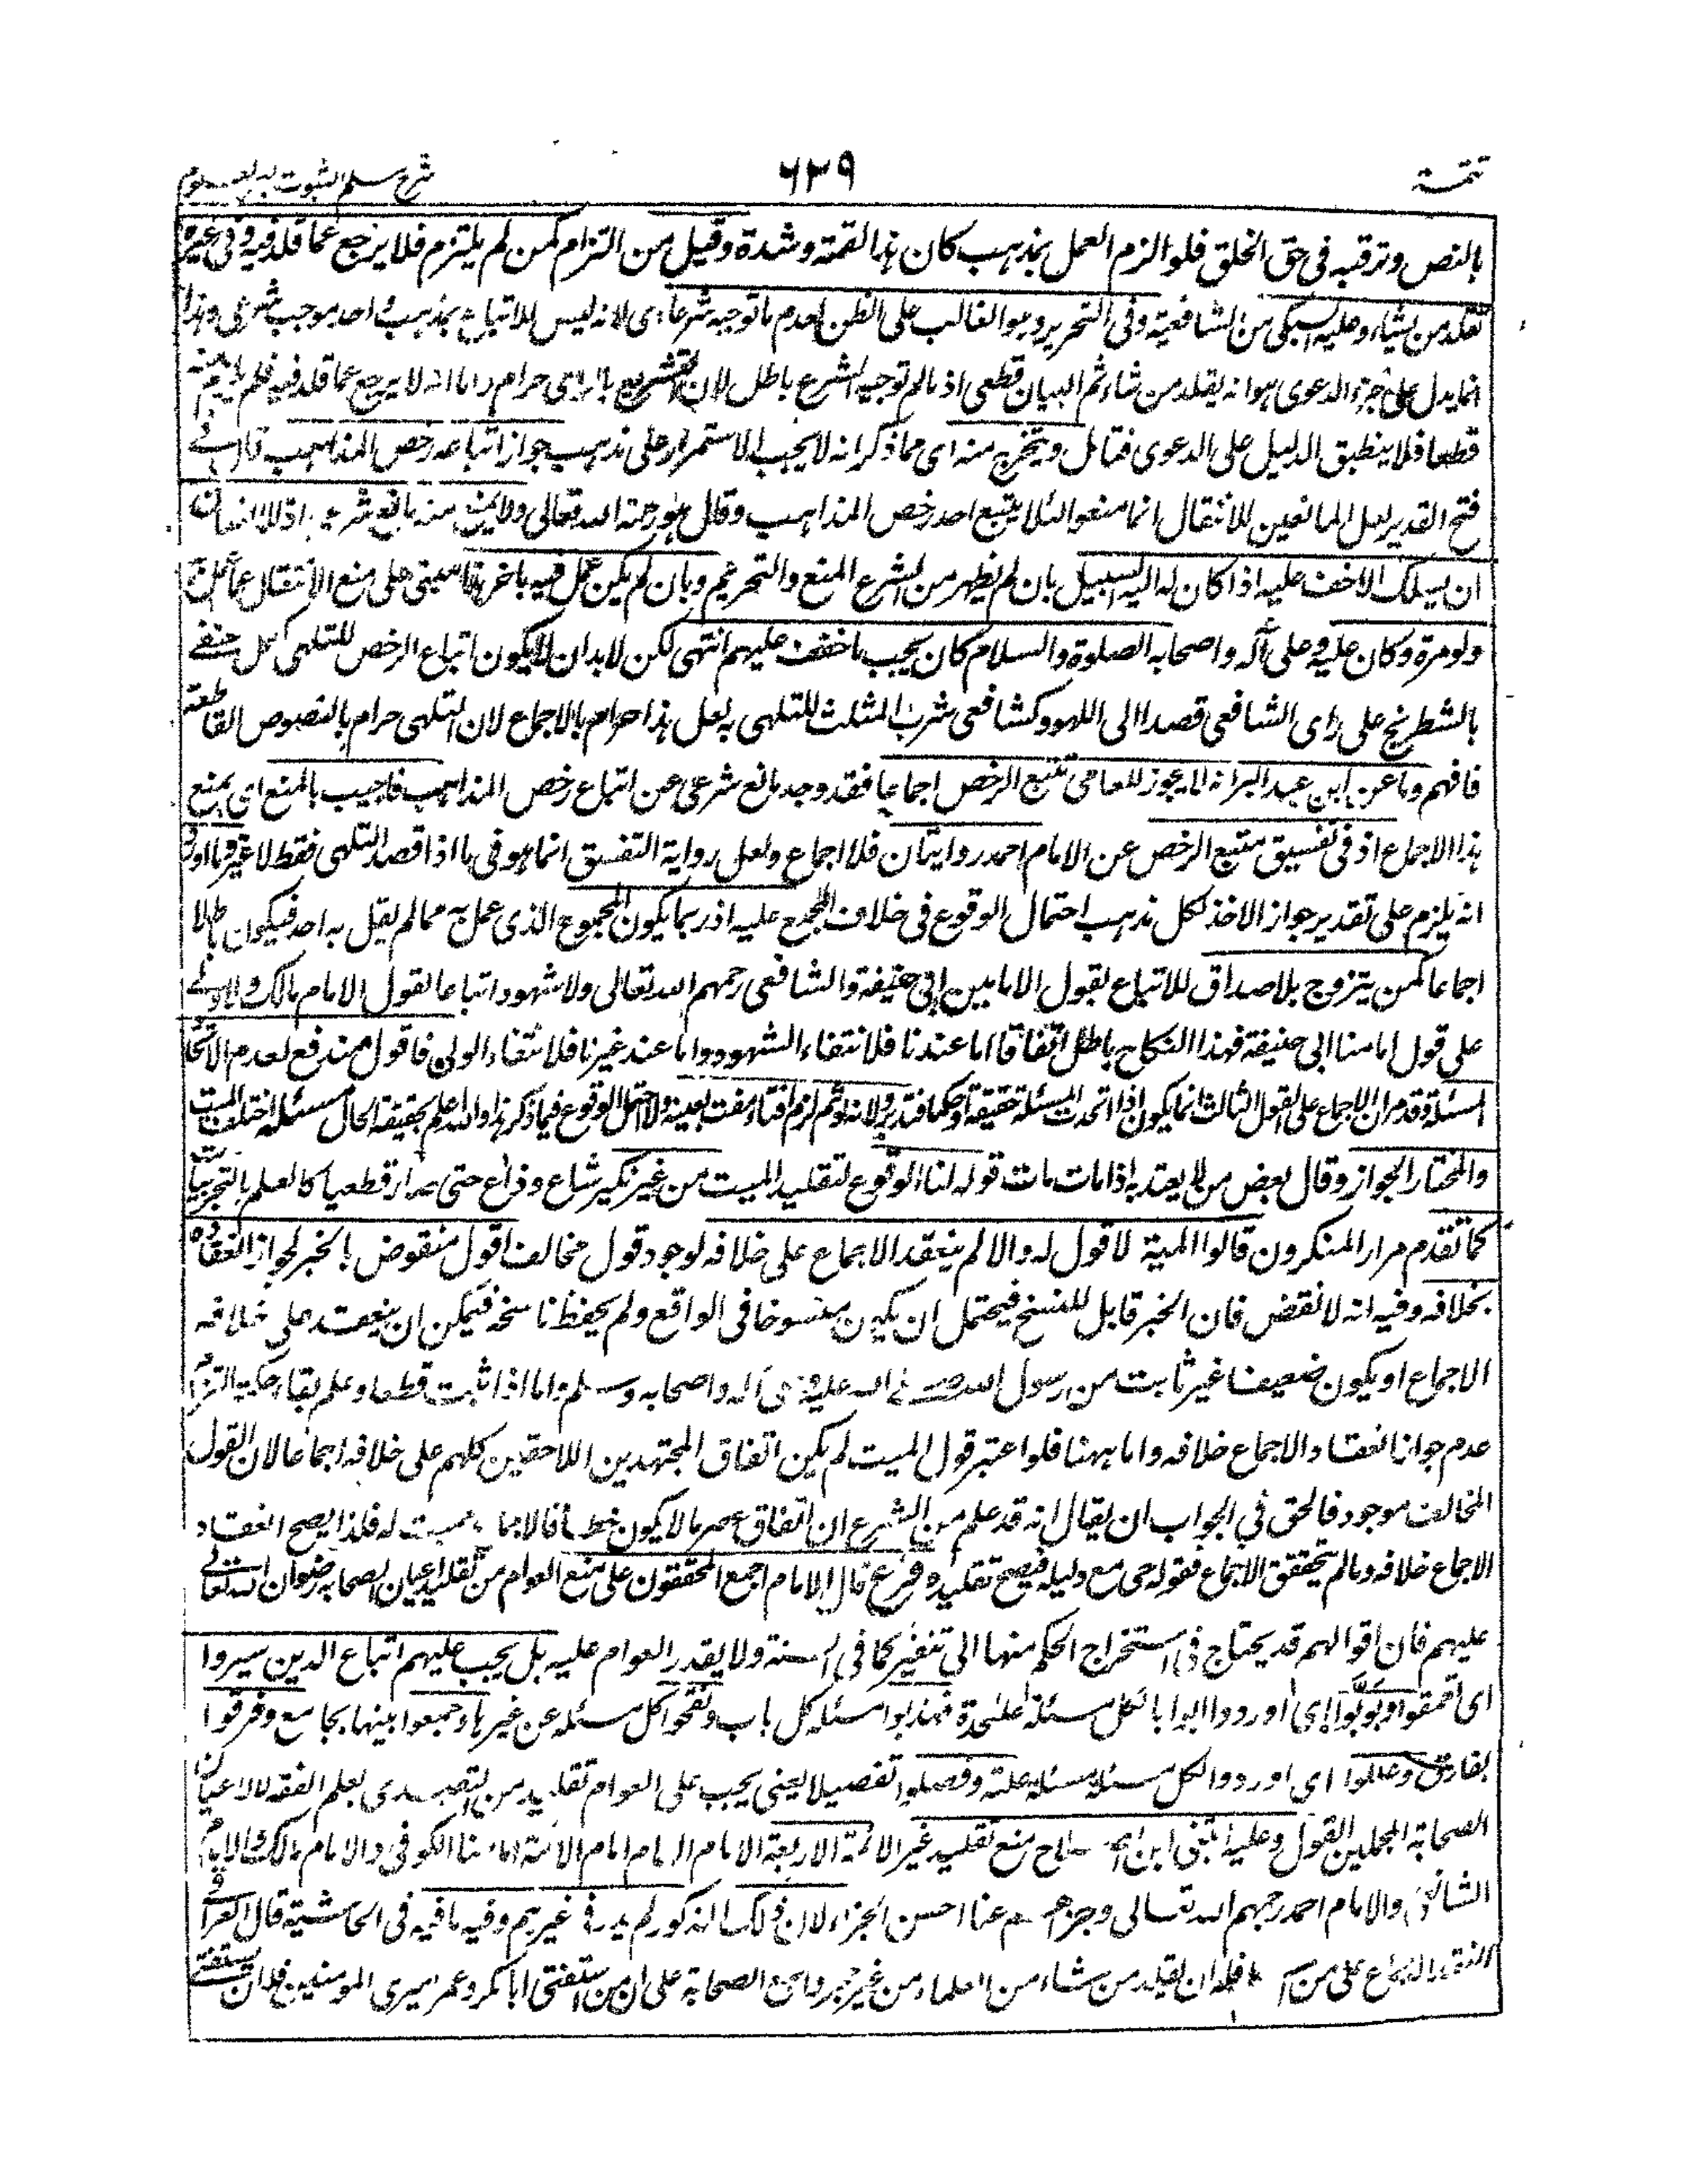 تتمة ٦٢٩ شرح مسلم الثبوت لبحر العلوم
بالنص وترقبه فى حق الخلق فلو الزم العمل بمذهب كان هذا نقمة وشدة وقيل من التزام كمن لم يلتزم فلا يرجع عما قلد فيه وفى غيره
يقلد من يشاء وعليه السبكى من الشافعية وفى التحرير وهو الغالب على الظن لعدم ما توجبه شرعا اى لانه ليس للاتباع بمذهب احد موجب شرعى وهذا
انما يدل على جزء الدعوى هو انه يقلد من شاء ثم البيان قطعى اذ مالم توجبه الشرع باطل لان التشريع بالراى حرام واما انه لا يرجع عما قلد فيه فلم يلزم منه
قطعا فلا ينطبق الدليل على الدعوى فتامل ويتخرج منه اى مما ذكر انه لا يجب الاستمرار على مذهب جواز اتباعه رخص المذاهب قال فى
فتح القدير لعل المانعين للانتقال انما منعوا لئلا يتتبع احد رخص المذاهب وقال هو رحمة الله تعالى ولا يمنع منه مانع شرعى اذ للانسان
ان يسلك الاخف عليه اذا كان له اليه السبيل بان لم يظهر من الشرع المنع والتحريم وبان لم يكن عمل فيه باخر هذا مبنى على منع الانتقال عما عمل به
ولو مرة وكان عليه وعلى آله واصحابه الصلوة والسلام كان يحب ما خفف عليهم انتهى لكن لابد ان لا يكون اتباع الرخص للتلهى كعمل حنفى
بالشطرنج على راى الشافعى قصدا الى اللهو وكشافعى شرب المثلث للتلهى به لعل هذا حرام بالاجماع لان التلهى حرام بالنصوص القاطعة
فافهم وما عن ابن عبد البر انه لا يجوز للعامى تتبع الرخص اجماعا فقد وجد مانع شرعى عن اتباع رخص المذاهب فاجيب بالمنع اى بمنع
هذا الاجماع اذ فى تفسيق متتبع الرخص عن الامام احمد روايتان فلا اجماع ولعل رواية التفسق انما هو فى ما اذا قصد التلهى فقط لا غير وما اورد
انه يلزم على تقدير جواز الاخذ لكل مذهب احتمال الوقوع فى خلاف المجمع عليه اذ ربما يكون المجموع الذى عمل به مما لم يقل به احد فيكون باطلا
اجماعا كمن يتزوج بلا صداق للاتباع لقول الامامين ابى حنيفة والشافعى رحمهم الله تعالى ولا شهود اتباعا لقول الامام مالك ولا ولى
على قول امامنا ابى حنيفة فهذا النكاح باطل اتفاقا اما عندنا فلانتفاء الشهود واما عند غيرنا فلانتفاء الولى فاقول مندفع لعدم الاتحاد
المسئلة وقد مر ان الاجماع على القول الثالث انما يكون اذا اتحدت المسئلة حقيقة او حكما فتدبر ولانه لو تم لزم افتاء مفت بعينه والا احتمل الوقوع فيما ذكر هذا والله اعلم بحقيقة الحال مسئلة اختلف الميت
والمختار الجواز وقال بعض من لا يعتد به اذا مات مات قوله لنا الوقوع لتقليد الميت من غير نكير شاع وذاع حتى صار قطعيا كالعلم بالتجربيات
كما تقدم مرارا المنكرون قالوا الميت لا قول له والا لم ينعقد الاجماع على خلافه لوجود قول مخالف اقول منقوض بالخبر لجواز انعقاده
بخلافه وفيه انه لا نقض فان الخبر قابل للنسخ فيحتمل ان يكون منسوخا فى الواقع ولم يحفظ ناسخه فيمكن ان ينعقد على خلافه
الاجماع او يكون ضعيفا غير ثابت من رسول الله صلى الله عليه وعلى آله واصحابه وسلم واما اذا ثبت قطعا وعلم بقاء حكمه التزم
عدم جواز انعقاد الاجماع خلافه واما ههنا فلو اعتبر قول الميت لم يكن اتفاق المجتهدين اللاحقين كلهم على خلافه اجماعا لان القول
المخالف موجود فالحق في الجواب ان يقال انه قد علم من الشرع ان اتفاق عصر ما لا يكون خطأ فالاجماع مميت له فلذا يصح انعقاد
الاجماع خلافه ومالم يتحقق الاجماع فقوله حى مع دليله فيصح تقليده فرع قال الامام اجمع المحققون على منع العوام من تقليد اعيان الصحابة رضوان الله تعالى
عليهم فان اقوالهم قد يحتاج فى استخراج الحكم منها الى تنقير كما فى السنة ولا يقدر العوام عليه بل يجب عليهم اتباع الذين سبروا
اى تعمقوا وبوّبوا اى اوردوا ابوابا لكل مسئلة علىحدة فهذبوا مسئلة كل باب ونقحوا كل مسئلة عن غيرها وجمعوا بينها بجامع وفرقوا
بفارق وعللوا اى اوردوا لكل مسئلة مسئلة علة وفصلوا تفصيلا يعنى يجب على العوام تقليد من التصدى بعلم الفقه لا لاعيان
الصحابة المجملين القول وعليه ابتنى ابن الصلاح منع تقليد غير الائمة الاربعة الامام الهمام امام الائمة امامنا الكوفى والامام مالك والامام
الشافعى والامام احمد رحمهم الله تعالى وجزاهم عنا احسن الجزاء لان ذلك المذكور لم يدر فى غيرهم وفيه ما فيه فى الحاشية قال العراقى
انعقد الاجماع على من اسلم فله ان يقلد من شاء من العلماء من غير حجر واجمع الصحابة على ان من استفتى ابا بكر وعمر اميرى المومنين فله ان يستفتى